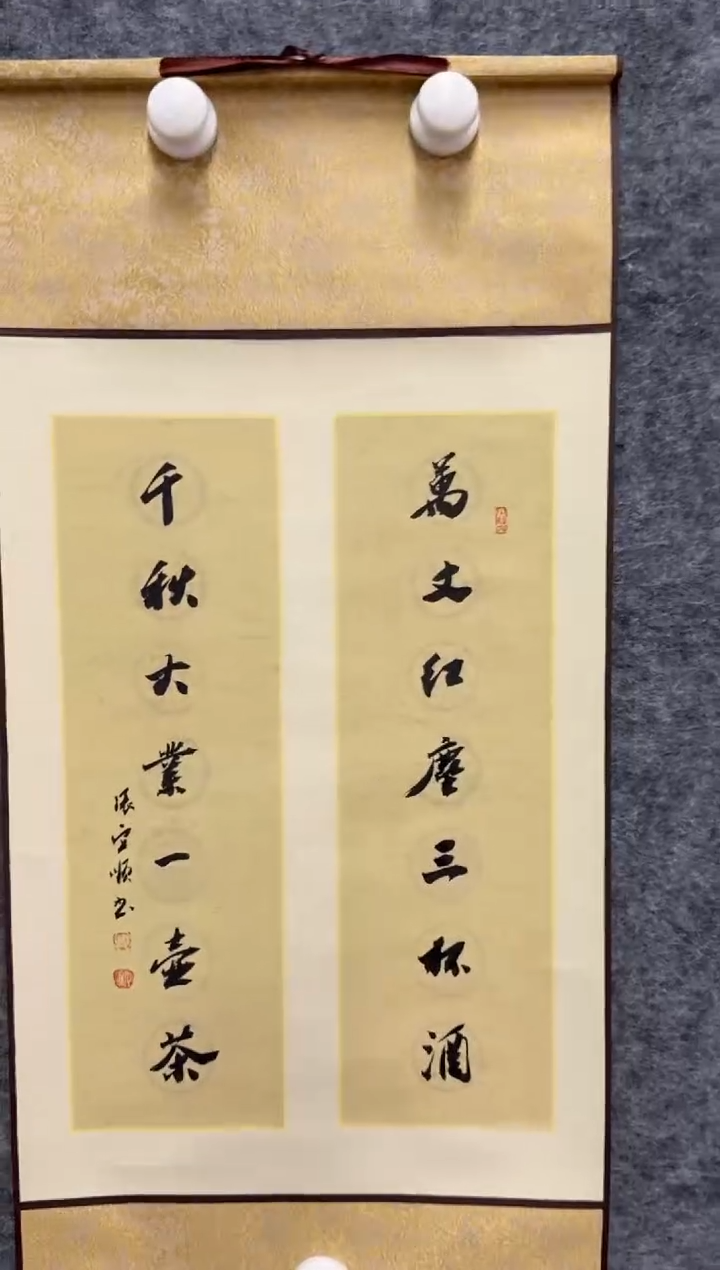 萬丈紅塵三杯酒
千秋大業一壺茶
張守順書